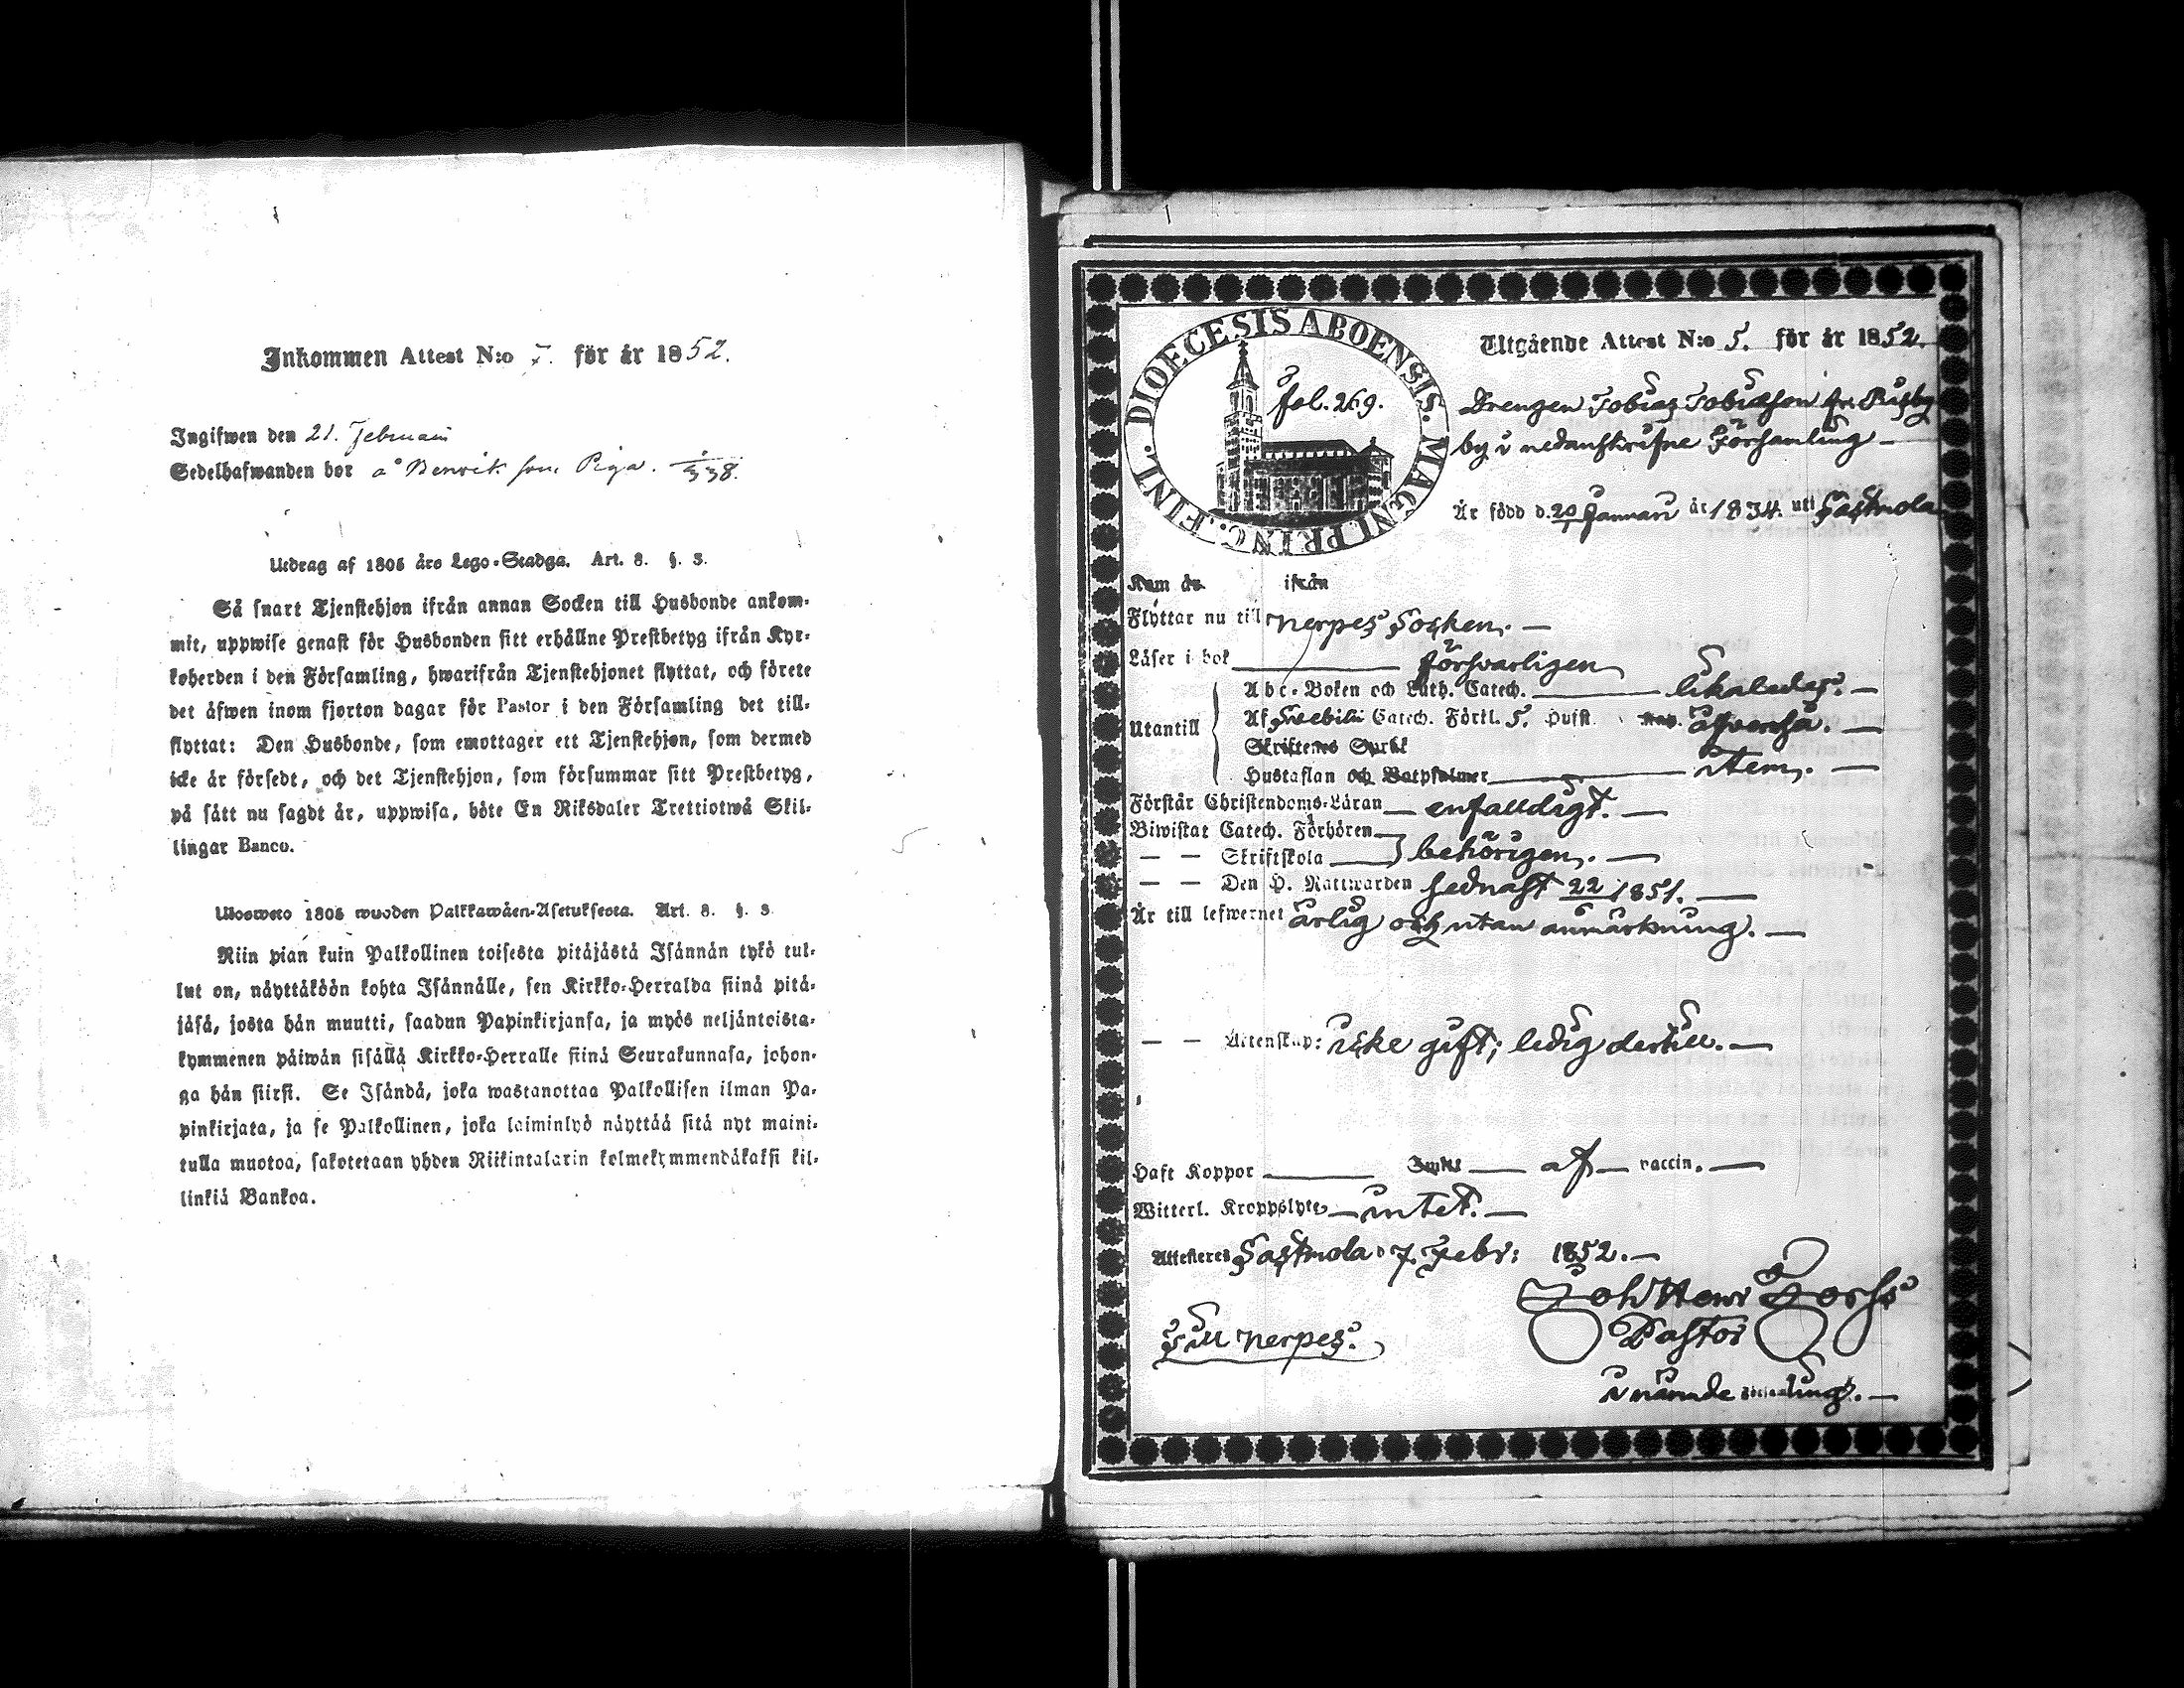 Inkommen Attest N:o 7. för år 1852.
Ingifwen den 21. Februari
Sedelhafwanden bor å Benvik som Piga. 338.
Utdrag af 1805 års Lego-Stadga. Art. 8. §. 3.
Så snart Tjenstehjon ifrån annan Socken till Husbonde ankom-
mit, uppwise genast för Husbonden sitt erhållne Prestbetyg ifrån Kyr-
koherden i den Församling, hwarifrån Tjenstehjonet flyttat, och förete
det äfwen inom fjorton dagar för Pastor i den Församling det till-
flyttat: Den Husbonde, som emottager ett Tjenstehjon, som dermed
icke är försedt, och det Tjenstehjon, som försummar sitt Prestbetyg,
på sätt nu sagdt är, uppwisa, böte En Riksdaler Trettiotwå Skil-
lingar Banco.
Ulosweto 1805 wuoden Palkkawäen-Asetuksesta. Art. 8. §. 3
Niin pian kuin Palkollinen toisesta pitäjästä Isännän tykö tul-
lut on, näyttäköön kohta Isännälle, sen Kirkko-Herralda siinä pitä-
jäsä, josta hän muutti, saadun Papinkirjansa, ja myös neljäntoista-
kymmenen päiwän sisällä Kirkko-Herralle siinä Seurakunnasa, johon-
ga hän siirsi. Se Isändä, joka wastanottaa Palkollisen ilman Pa-
pinkirjata, ja se Palkollinen, joka laiminlyö näyttää sitä nyt maini-
tulla muotoa, sakotetaan yhden Riikintalarin kolmekymmendäkaksi kil-
linkiä Bankoa.
DIOECESIS ABOENSIS. MAGNI PRINC. FINL.
fol. 269.
Utgående Attest N:o 5. för år 1852.
Drengen Tobias Tobiasson fr. Riisby
by i nedanskrifne Församling
Är född d. 20 Januari år 1834. uti Sastmola
Kom år ifrån
Flyttar nu till Nerpes Socken.
Läser i bok försvarligen
Utantill
Abc-Boken och Luth. Catech. likaledes.
Af Svebilii Catech. Förkl. 5. Hufst. Kap. äfvenså.
Skriftenes Språk
Hustaflan och Botpsalmer item.
Förstår Christendoms-Läran enfalldigt.
Biwistat Catech. Förhören
— — Skriftskola behörigen.
— — Den H. Nattwarden sednast 22 1851.
Är till lefwernet ärlig och utan anmärkning.
— — Äktenskap: icke gift; ledig dertill.
Haft Koppor af vaccin.
Witterl. Kroppslyte intet.
Attesteres Sastmola d 7. Febr: 1852.
Joh Henr Forss
Pastor
i nämnde Församling.
Till Nerpes.